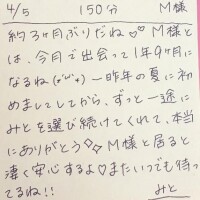 4/5 150分 M様
約3ヶ月ぶりだね♡♡M様と
は、今月で出会って1年9ヶ月に
なるね(*'ω'*)一昨年の夏に初
めましてしてから、ずっと一途に
みとを選び続けてくれて、本当
にありがとう◇◇M様と居ると
凄く安心するよ♡またいつでも待っ
てるね!!
みと